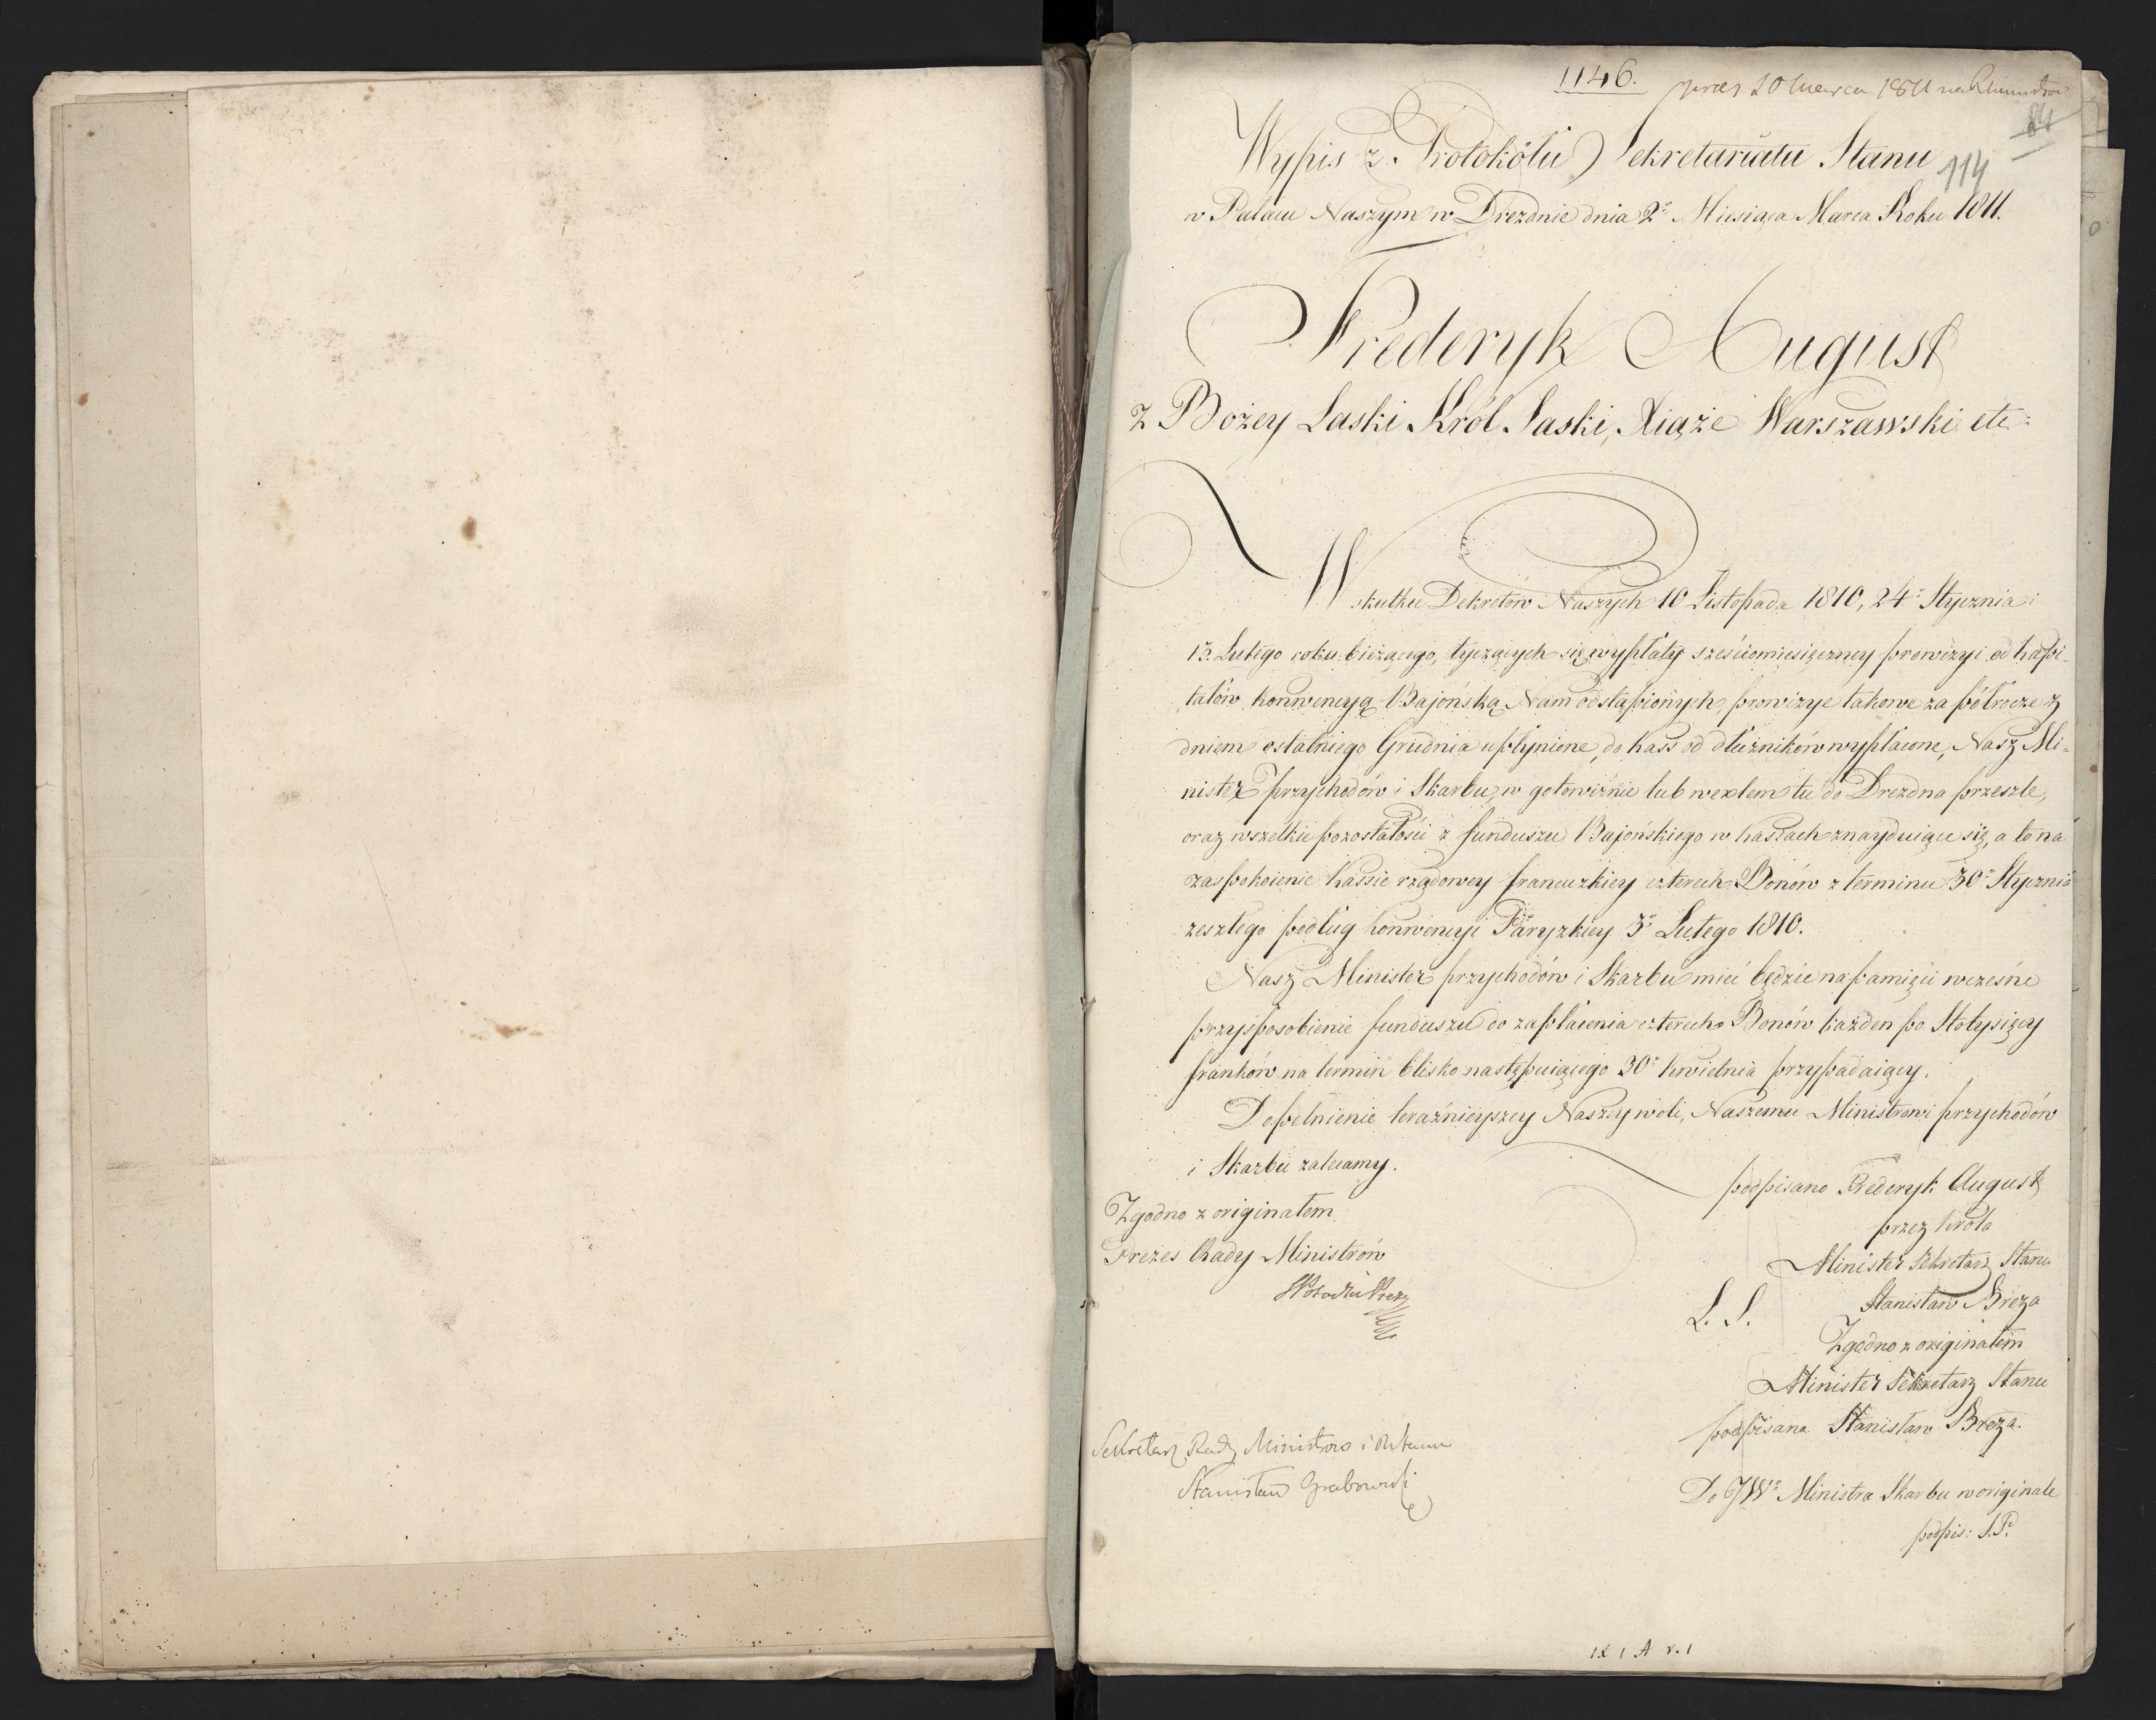 1146.
20 Marca 1811
84
Wypis z Protokółu Sekretariatu Stanu
114
w Pałacu Naszym w Dreznie dnia 2º Miesiąca Marca Roku 1811.
Frederyk August
z Bożey Łaski Król Saski, Xiąże Warszawski etc:
W skutku Dekretów Naszych 10 Listopada 1810, 24º Stycznia i
13 Lutego roku bieżącego, tyczących się wypłaty sześciomiesięczney prowizyi od kapi-
tałów konwencyą Bajońską Nam odstąpionych, prowizye takowe za półrocze z
dniem ostatniego Grudnia upłynione, do kass od dłużników wypłacone, Nasz Mi-
nister przychodów i Skarbu, w gotowiźnie lub wexlem tu do Drezdna przeszle,
oraz wszelkie pozostałości z funduszu Bajońskiego w kassach znayduiące się, a to na
zaspokoienie kassie rządowey francuzkiey czterech Bonów z terminu 30º Stycznia
zeszłego podług konwencyi Paryzkiey 3º Lutego 1810.
Nasz Minister przychodów i Skarbu mieć będzie na pamięci wcześne
przysposobienie funduszu do zapłacenia czterech Bonów każden po Stotysięcy
franków na termin blisko następuiącego 30º kwietnia przypadaiący.
Dopełnienie teraźnieyszey Naszey woli, Naszemu Ministrowi przychodów
i Skarbu zalecamy.
podpisano Frederyk August
przez Króla
Minister Sekretarz Stanu
Stanisław Breza
L. S.
Zgodno z originałem
Minister Sekretarz Stanu
podpisano Stanisław Breza.
Zgodno z originałem
Prezes Rady Ministrów
Sekretarz Rady Ministrów i
Stanisław Grabowski
Do JWº Ministra Skarbu w originale
podpis: S.P.
IX 1 A v. 1